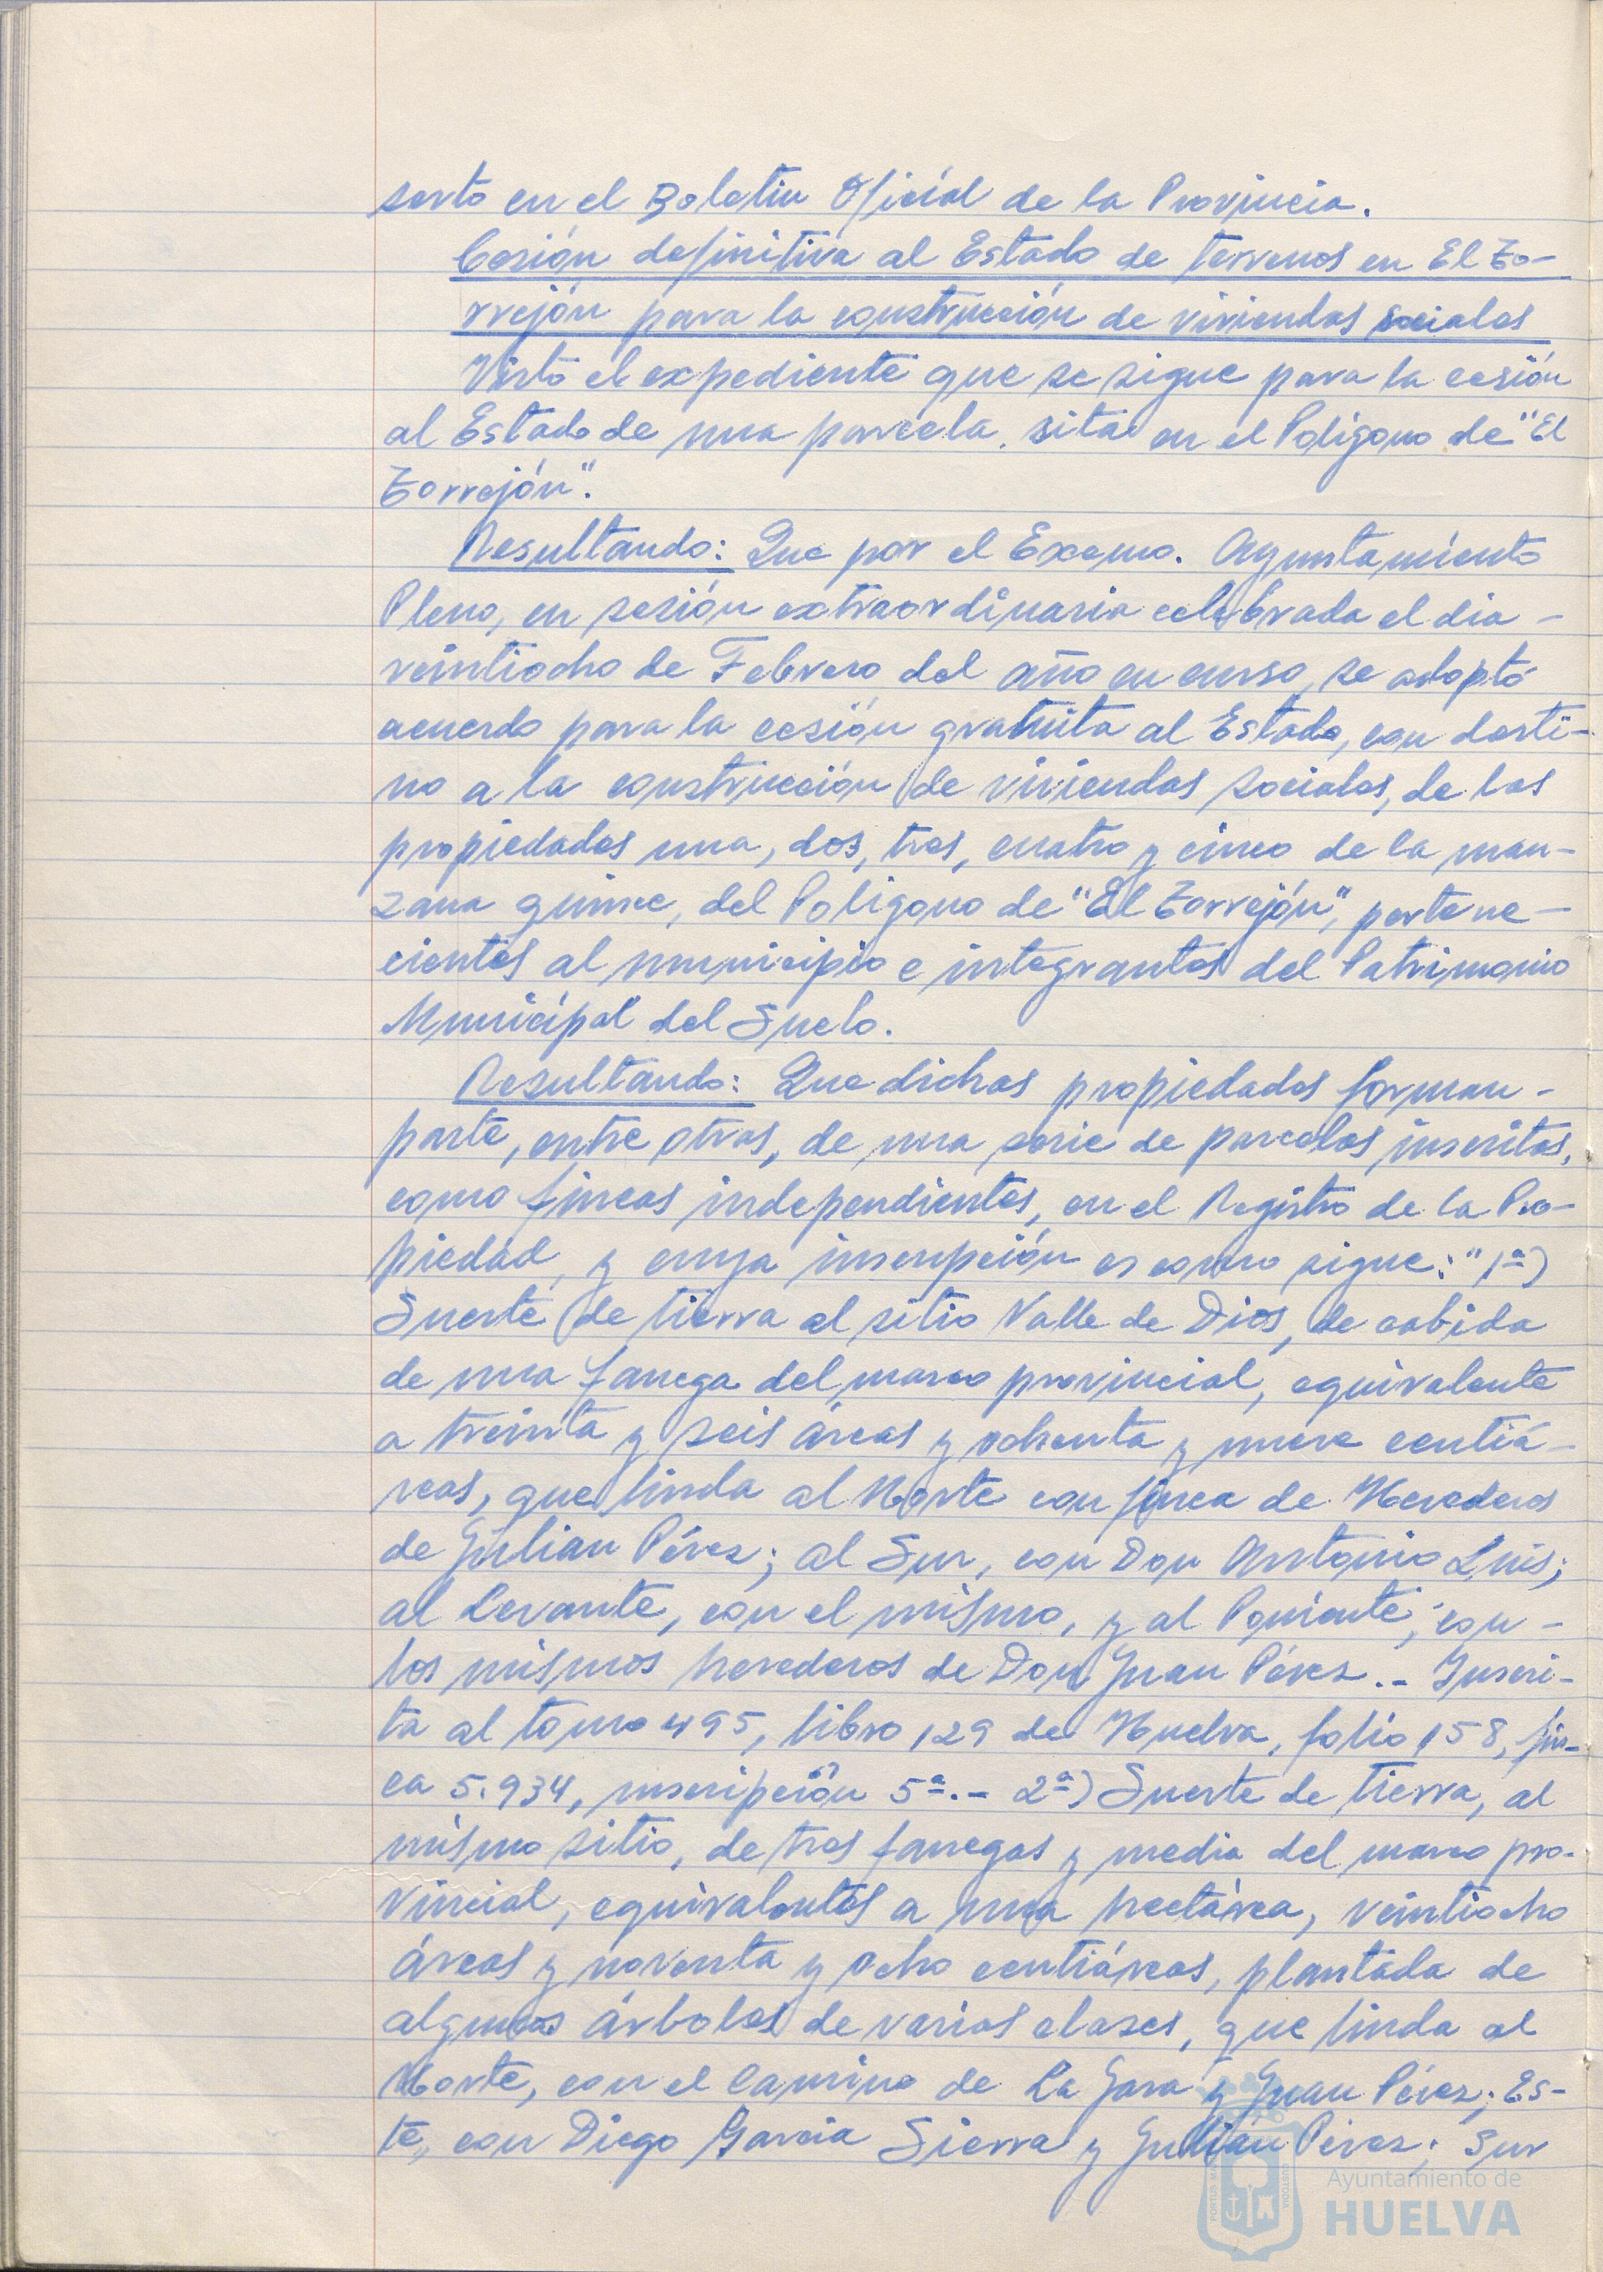 serto en el Boletin Oficial de la Provincia.
Cesión definitiva al Estado de terrenos en El To-
rrejón para la construcción de viviendas sociales
Visto el expediente que se sigue para la cesión
al Estado de una parcela sita en el Polígono de "El
Torrejón".
Resultando: Que por el Excmo. Ayuntamiento
Pleno, en sesión extraordinaria celebrada el dia -
veintiocho de Febrero del año en curso, se adoptó
acuerdo para la cesión gratuita al Estado, con desti-
no a la construcción de viviendas sociales, de las
propiedades una, dos, tres, cuatro y cinco de la man-
zana quince, del Polígono de "El Torrejón", pertene-
cientes al municipio e integrantes del Patrimonio
Municipal del Suelo.
Resultando: Que dichas propiedades forman -
parte, entre otras, de una serie de parcelas inscritas,
como fincas independientes, en el Registro de la Pro-
piedad, y cuya inscripción es como sigue: " 1ª)
Suerte de tierra al sitio Valle de Dios, de cabida
de una fanega del marco provincial, equivalente
a treinta y seis áreas y ochenta y nueve centiá-
reas, que linda al Norte con finca de Herederos
de Julian Pérez; al Sur, con Don Antonio Luis;
al Levante, con el mismo, y al Poniente, con -
los mismos herederos de Don Juan Pérez.- Inscri-
ta al tomo 495, libro 129 de Huelva, folio 158, fin-
ca 5.934, inscripción 5ª.- 2ª) Suerte de tierra, al
mismo sitio, de tres fanegas y media del marco pro-
vincial, equivalentes a una hectárea, veintiocho
áreas y noventa y ocho centiáreas, plantada de
algunos árboles de varias clases, que linda al
Norte, con el Camino de La Jara y Juan Pérez; Es-
te, con Diego Garcia Sierra y Julian Pérez; Sur
Ayuntamiento de
HUELVA